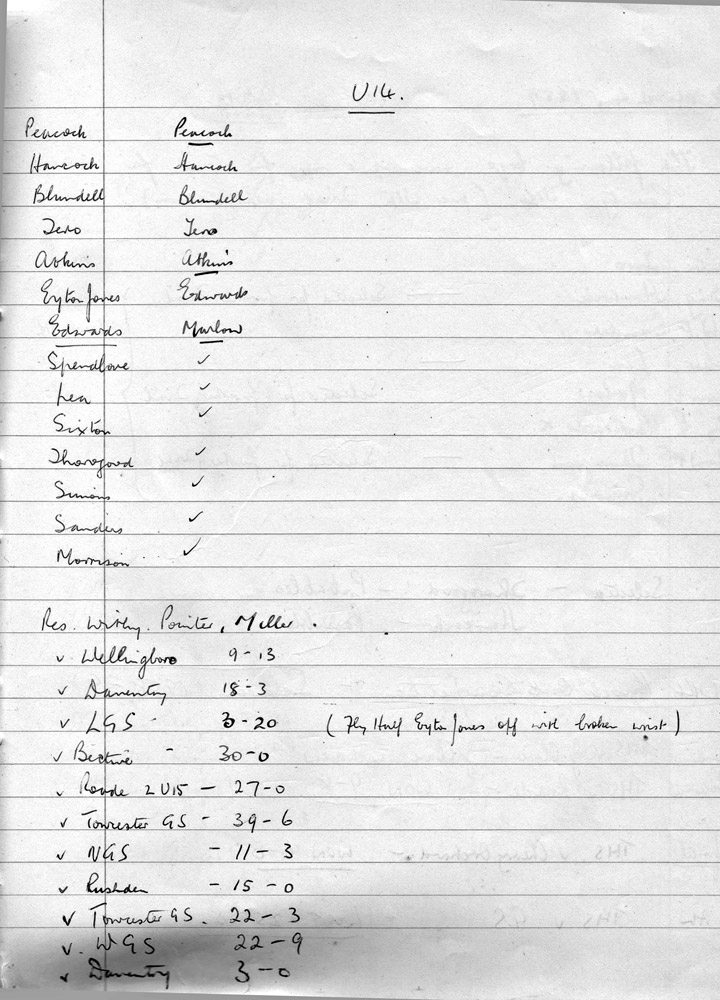 U14.
Peacock Peacock
Hancock Hancock
Blundell Blundell
Tero Tero
Atkins Atkins
Eyton Jones Edwards
Edwards Marlow
Spendlove ✓
Lea ✓
Sixton ✓
Thorogood ✓
Simons ✓
Sanders ✓
Morrison ✓
Res. Withy. Pointer, Miller.
v Wellingboro 9-13
v Daventry 18-3
v LGS - 3-20 (Fly Half Eyton Jones off with broken wrist)
v Bective - 30-0
v Roade 2 U15 - 27-0
v Towcester GS - 39-6
v NGS - 11-3
v Rushden - 15-0
v Towcester GS. 22-3
v. WGS 22-9
v Daventry 3-0